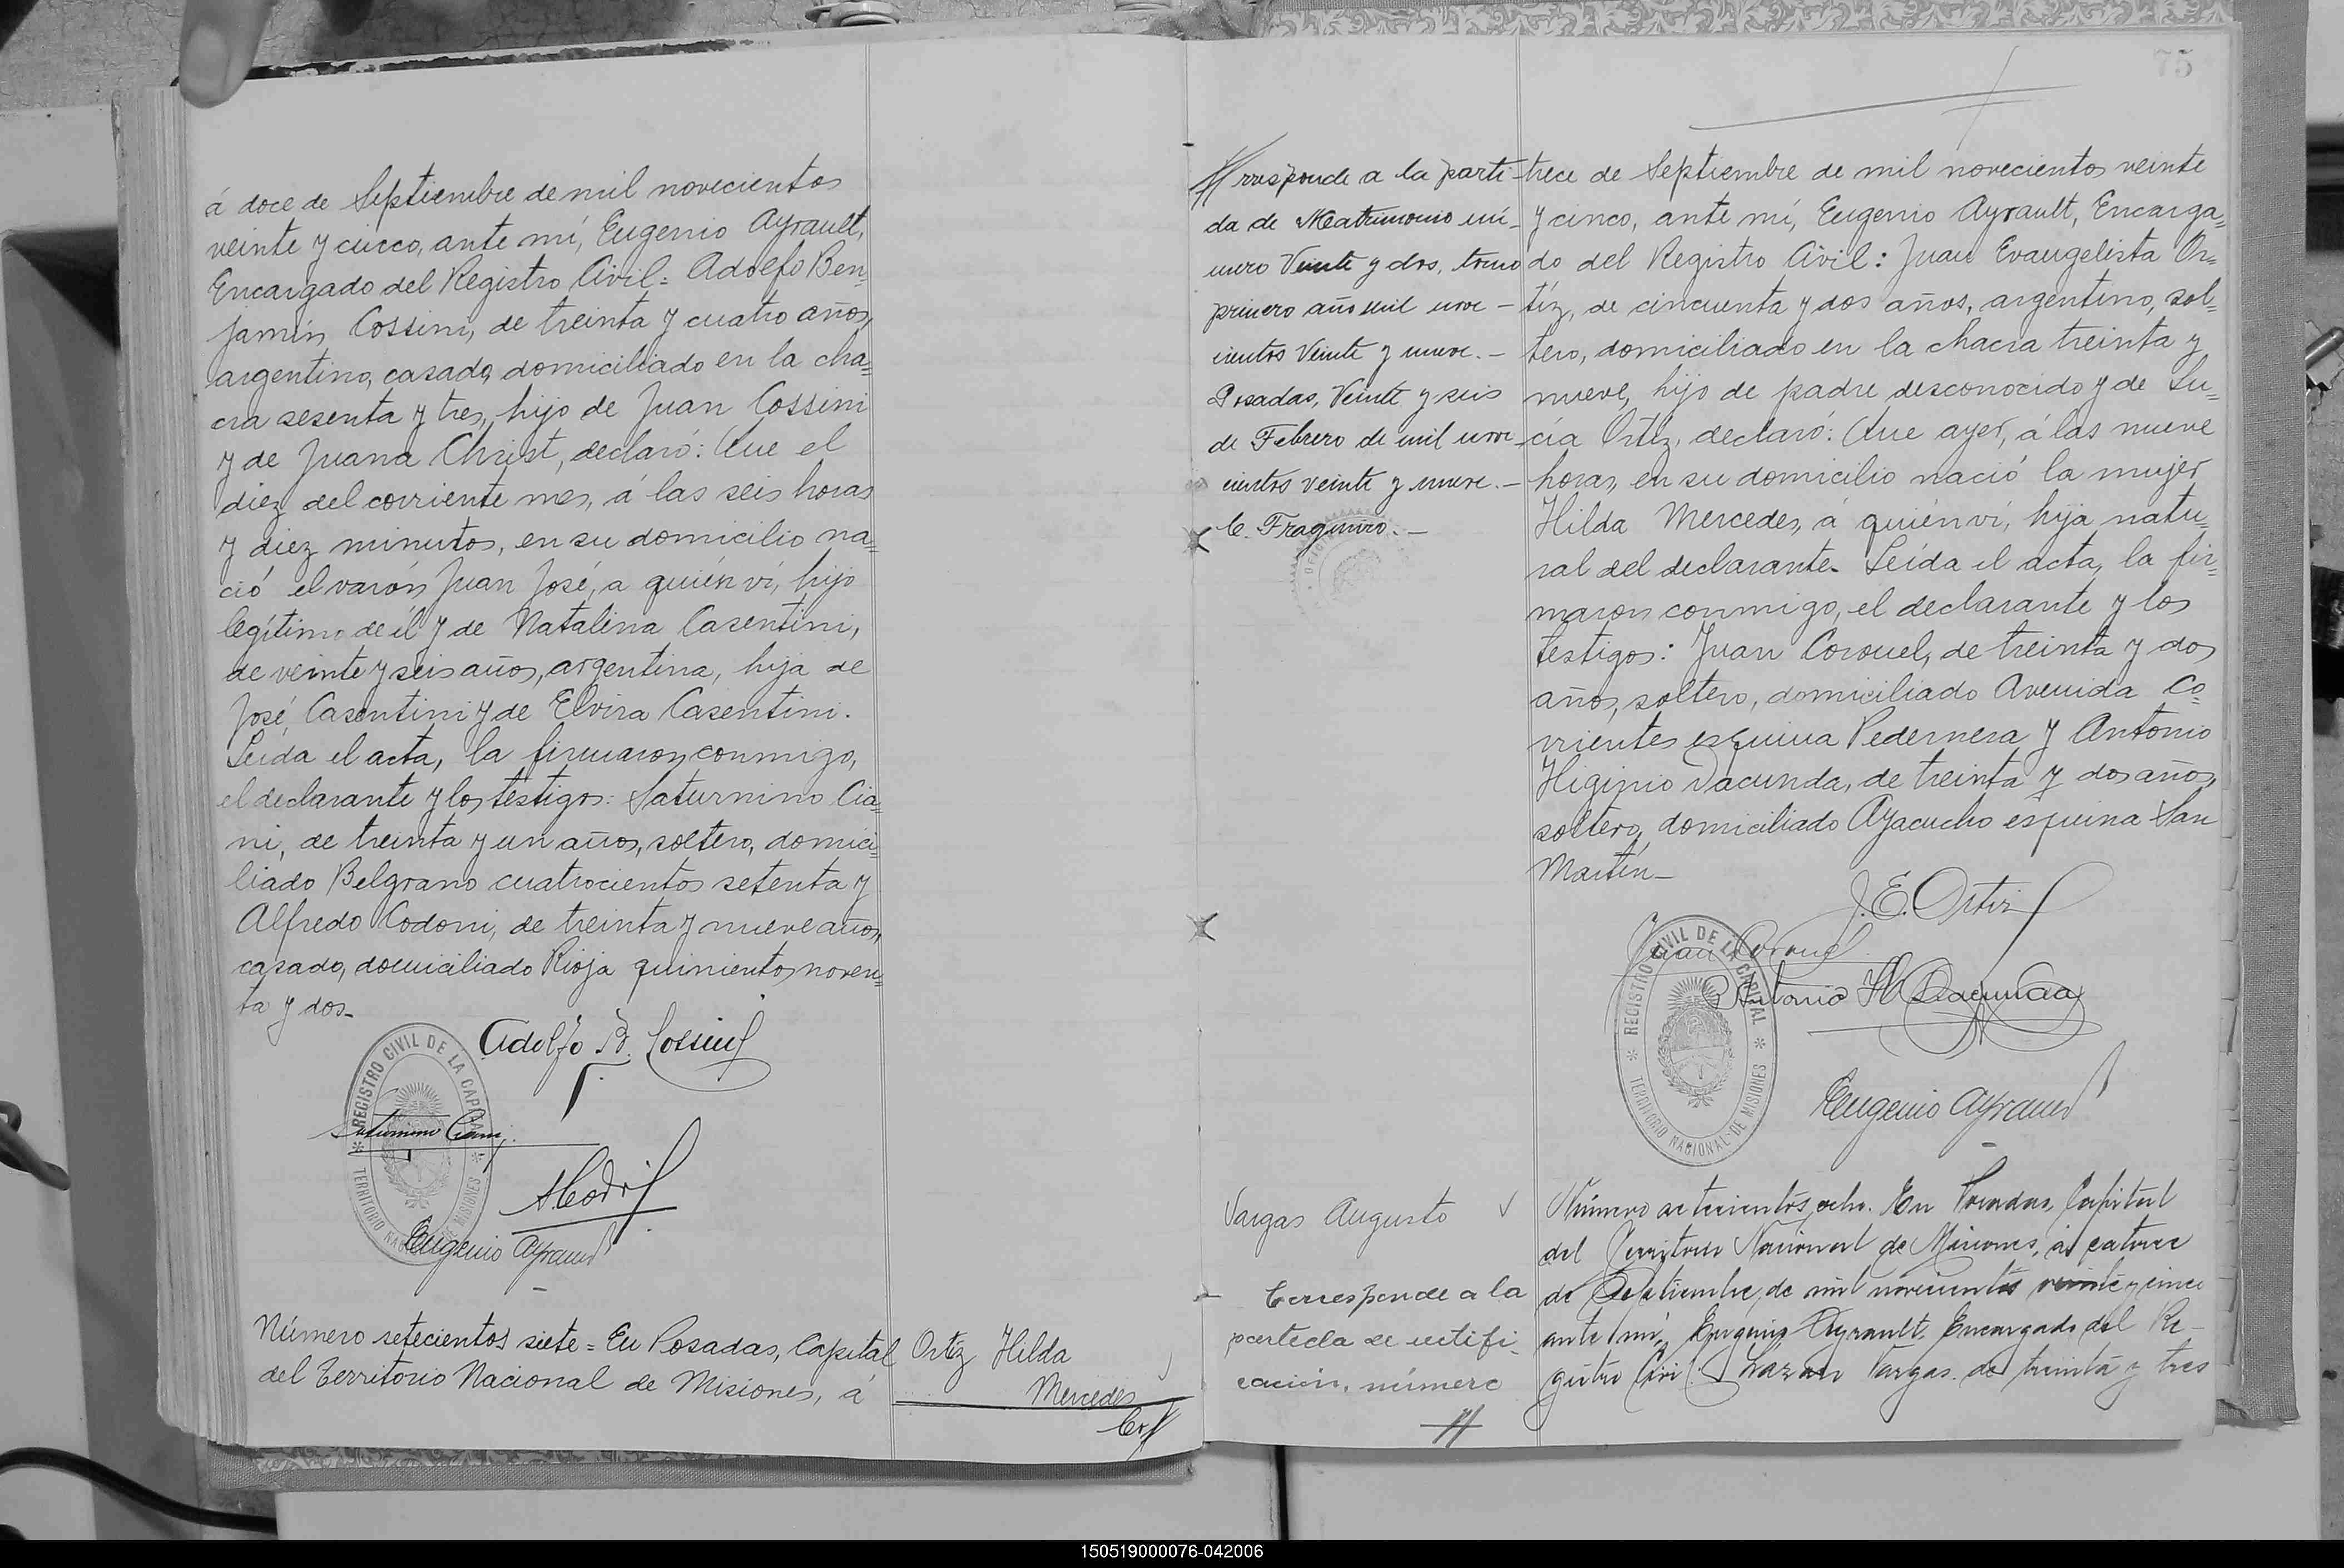 á doce de Septiembre de mil novecientos
veinte y cinco, ante mí, Eugenio Ayrault,
Encargado del Registro Civil: Adolfo Ben=
jamín Cossini, de treinta y cuatro años,
argentino, casado, domiciliado en la cha=
cra sesenta y tres, hijo de Juan Cossini
y de Juana Christ, declaró: Que el
diez del corriente mes, á las seis horas
y diez minutos, en su domicilio na=
ció el varón Juan José, a quién ví, hijo
legítimo de él y de Natalina Casentini,
de veinte y seis años, argentina, hija de
José Casentini y de Elvira Casentini.
Leída el acta, la firmaron conmigo,
el declarante y los testigos: Saturnino Cia=
ni, de treinta y un años, soltero, domici=
liado Belgrano cuatrocientos setenta y
Alfredo Codoni, de treinta y nueve años,
casado, domiciliado Rioja quinientos noven=
ta y dos_
Adolfo B. Cossini
REGISTRO CIVIL DE LA CAPITAL
TERRITORIO NACIONAL DE MISIONES
Saturnino Ciani
Eugenio Ayrault
Número setecientos siete = En Posadas, Capital
del Territorio Nacional de Misiones, á
Ortíz Hilda
Mercedes
Co//
75
//rresponde a la parti-
da de Matrimonio nú-
mero Veinte y dos, tomo
primero año mil nove-
cientos Veinte y nueve.-
Posadas, Veinte y seis
de Febrero de mil nove-
cientos veinte y nueve.-
trece de Septiembre de mil novecientos veinte
y cinco, ante mí, Eugenio Ayrault, Encarga=
do del Registro Civil: Juan Evangelista Or=
tíz, de cincuenta y dos años, argentino, sol=
tero, domiciliado en la chacra treinta y
nueve, hijo de padre desconocido y de Lu=
cía Ortíz, declaró: Que ayer, á las nueve
horas, en su domicilio nació la mujer
Hilda Mercedes, á quién ví, hija natu=
ral del declarante. Leída el acta, la fir=
maron conmigo, el declarante y los
testigos: Juan Coronel, de treinta y dos
años, soltero, domiciliado Avenida Co=
rrientes esquina Pedernera y Antonio
Higinio Dacunda, de treinta y dos años,
soltero, domiciliado Ayacucho esquina San
Martín_
J. E. Ortiz
Juan Coronel
Antonio H Dacunda
REGISTRO CIVIL DE LA CAPITAL
TERRITORIO NACIONAL DE MISIONES
Eugenio Ayrault
Vargas Augusto
Corresponde a la
partida de rectifi-
cación, número
//
Número setecientos ocho. En Posadas, Capital
del Territorio Nacional de Misiones, á catorce
de Septiembre de mil novecientos veinte y cinco
ante mí, Eugenio Ayrault, Encargado del Re-
gistro Civil: Vargas, de treinta y tres
150519000076-042006